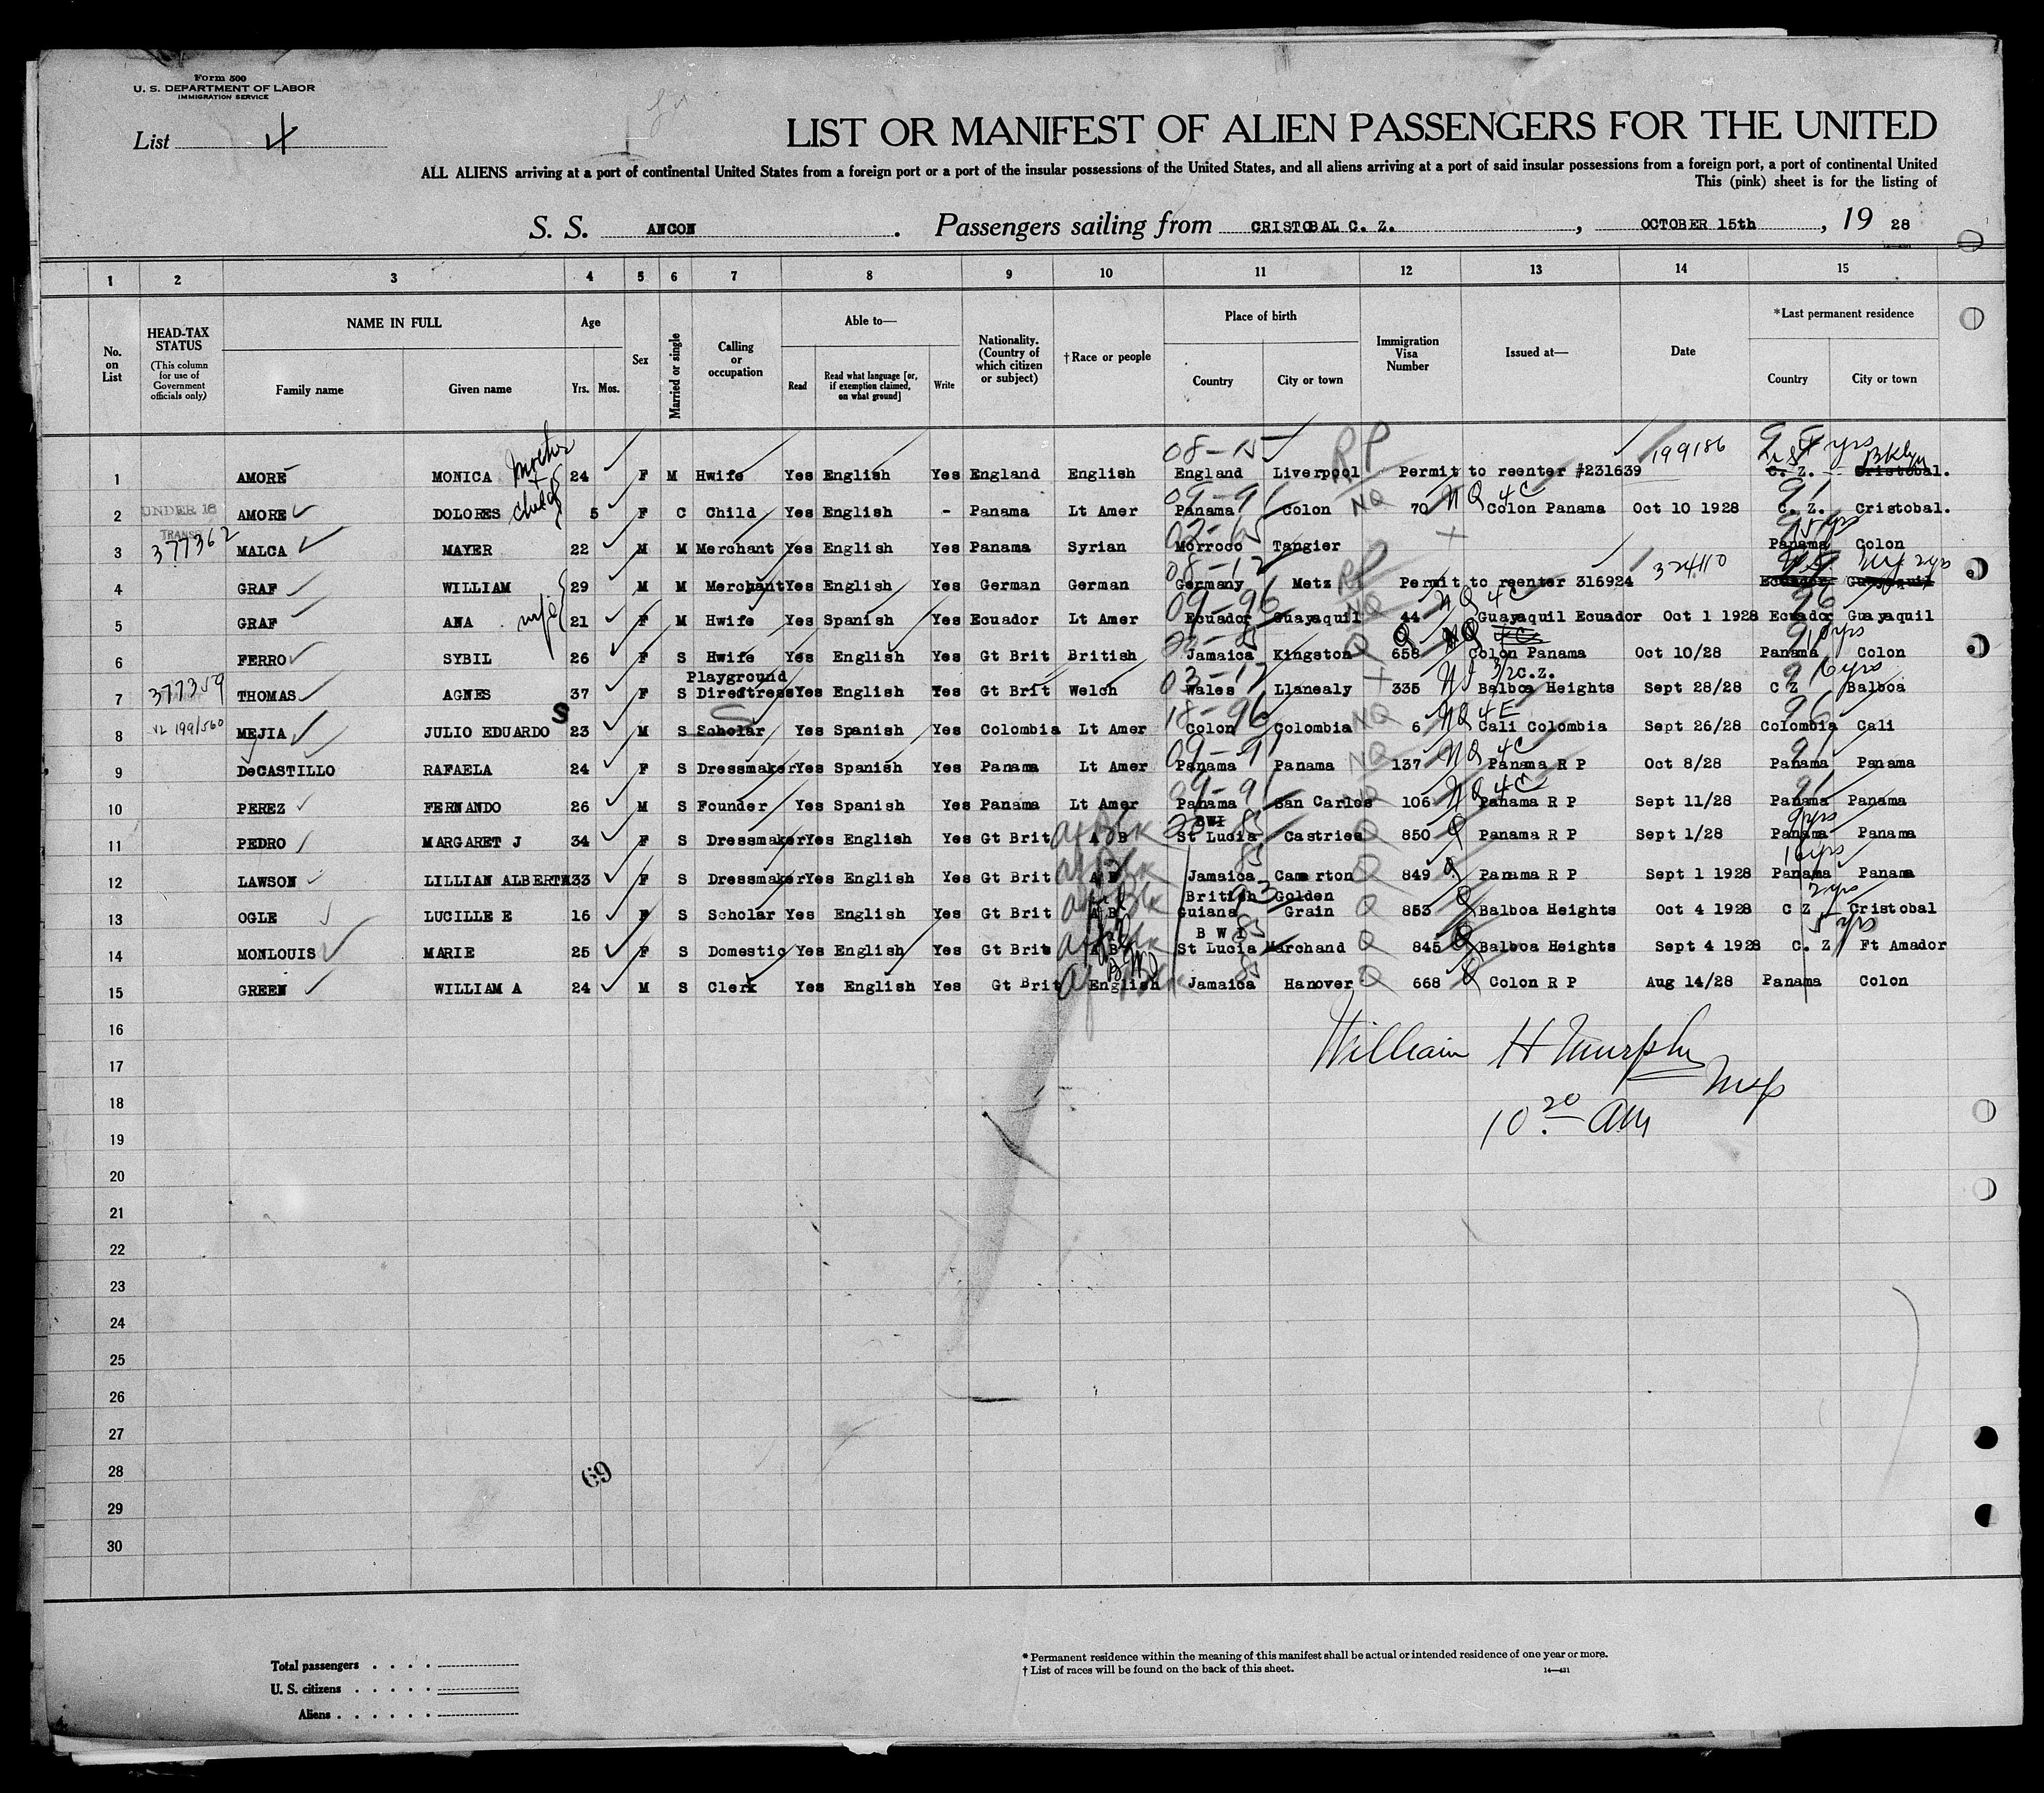 Form 500
U. S. DEPARTMENT OF LABOR
IMMIGRATION SERVICE
List 4
LIST OR MANIFEST OF ALIEN PASSENGERS FOR THE UNITED
ALL ALIENS arriving at a port of continental United States from a foreign port or a port of the insular possessions of the United States, and all aliens arriving at a port of said insular possessions from a foreign port, a port of continental United
This (pink) sheet is for the listing of
S. S. ANCON . Passengers sailing from CRISTOBAL C. Z. , OCTOBER 15th , 19 28
1 2 3 4 5 6 7 8 9 10 11 12 13 14 15
No. on List
HEAD-TAX STATUS (This column for use of Government officials only)
NAME IN FULL Family name Given name
Age Yrs. Mos.
Sex
Married or single
Calling or occupation
Able to— Read Read what language [or, if exemption claimed, on what ground] Write
Nationality. (Country of which citizen or subject)
†Race or people
Place of birth Country City or town
Immigration Visa Number
Issued at—
Date
*Last permanent residence Country City or town
08-15 RP 199186 yrs
1 AMORE MONICA mother + child 24 F M Hwife Yes English Yes England English England Liverpool Permit to reenter #231639 C. Z. Cristobal. Bklyn
UNDER 18 09-91 NQ NQ 4C 91
2 AMORE DOLORES 5 F C Child Yes English - Panama Lt Amer Panama Colon 70 Colon Panama Oct 10 1928 C. Z. Cristobal.
TRANSIT 377362
3 MALCA MAYER 22 M M Merchant Yes English Yes Panama Syrian Morroco Tangier Panama Colon
08-12 RP 324110 2yrs
4 GRAF WILLIAM 29 M M Merchant Yes English Yes German German Germany Metz Permit to reenter 316924 Ecuador Guayaquil
09-96 NQ NQ 4C 96
5 GRAF ANA wife 21 F M Hwife Yes Spanish Yes Ecuador Lt Amer Ecuador Guayaquil 44 Guayaquil Ecuador Oct 1 1928 Ecuador Guayaquil
Q Q NQ 4C 10yrs
6 FERRO SYBIL 26 F S Hwife Yes English Yes Gt Brit British Jamaica Kingston 658 Colon Panama Oct 10/28 Panama Colon
377359 Playground 03-17 C.Z. 16yrs
7 THOMAS AGNES 37 F S Directress Yes English Yes Gt Brit Welch Wales Llanealy 335 Balboa Heights Sept 28/28 C Z Balboa
VL 199/560 S 18-96 NQ NQ 4E 96
8 MEJIA JULIO EDUARDO 23 M S Scholar Yes Spanish Yes Colombia Lt Amer Colon Colombia 6 Cali Colombia Sept 26/28 Colombia Cali
09-91 NQ NQ 4C 91
9 DeCASTILLO RAFAELA 24 F S Dressmaker Yes Spanish Yes Panama Lt Amer Panama Panama 137 Panama R P Oct 8/28 Panama Panama
09-91 NQ NQ 4C 91
10 PEREZ FERNANDO 26 M S Founder Yes Spanish Yes Panama Lt Amer Panama San Carlos 106 Panama R P Sept 11/28 Panama Panama
BWI 85 9yrs
11 PEDRO MARGARET J 34 F S Dressmaker Yes English Yes Gt Brit Af Blk A B St Lucia Castries Q 850 Q Panama R P Sept 1/28 Panama Panama
85 16yrs
12 LAWSON LILLIAN ALBERTH 33 F S Dressmaker Yes English Yes Gt Brit Af Blk A B Jamaica Camerton Q 849 Q Panama R P Sept 1 1928 Panama Panama
British Golden 93 2yrs
13 OGLE LUCILLE E 16 F S Scholar Yes English Yes Gt Brit Af Blk A B Guiana Grain Q 853 Q Balboa Heights Oct 4 1928 C Z Cristobal
B W I 85 5 yrs
14 MONLOUIS MARIE 25 F S Domestic Yes English Yes Gt Brit Af Blk A B St Lucia Marchand Q 845 Q Balboa Heights Sept 4 1928 C. Z Ft Amador
85
15 GREEN WILLIAM A 24 M S Clerk Yes English Yes Gt Brit Af Blk English Jamaica Hanover Q 668 Q Colon R P Aug 14/28 Panama Colon
16
William H Murphy
17
Insp
18
10.20 AM
19
20
21
22
23
24
25
26
27
28
69
29
30
Total passengers . . . .
U. S. citizens . . . . .
Aliens . . . . . .
* Permanent residence within the meaning of this manifest shall be actual or intended residence of one year or more.
† List of races will be found on the back of this sheet. 14—431